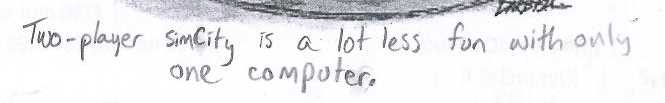 Two-player SimCity is a lot less fun with only
one computer.